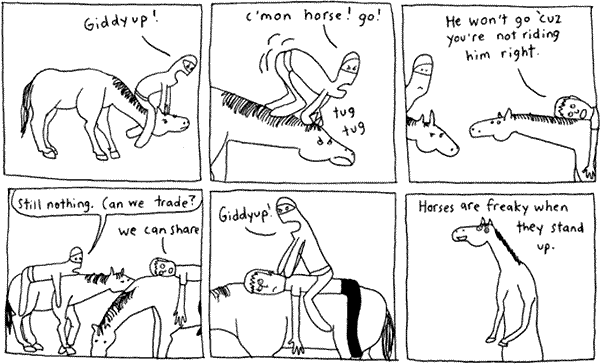 Giddyup!
C'mon horse! go!
tug
tug
He won't go 'cuz
you're not riding
him right.
Still nothing. Can we trade?
we can share
Giddyup!
Horses are freaky when
they stand
up.